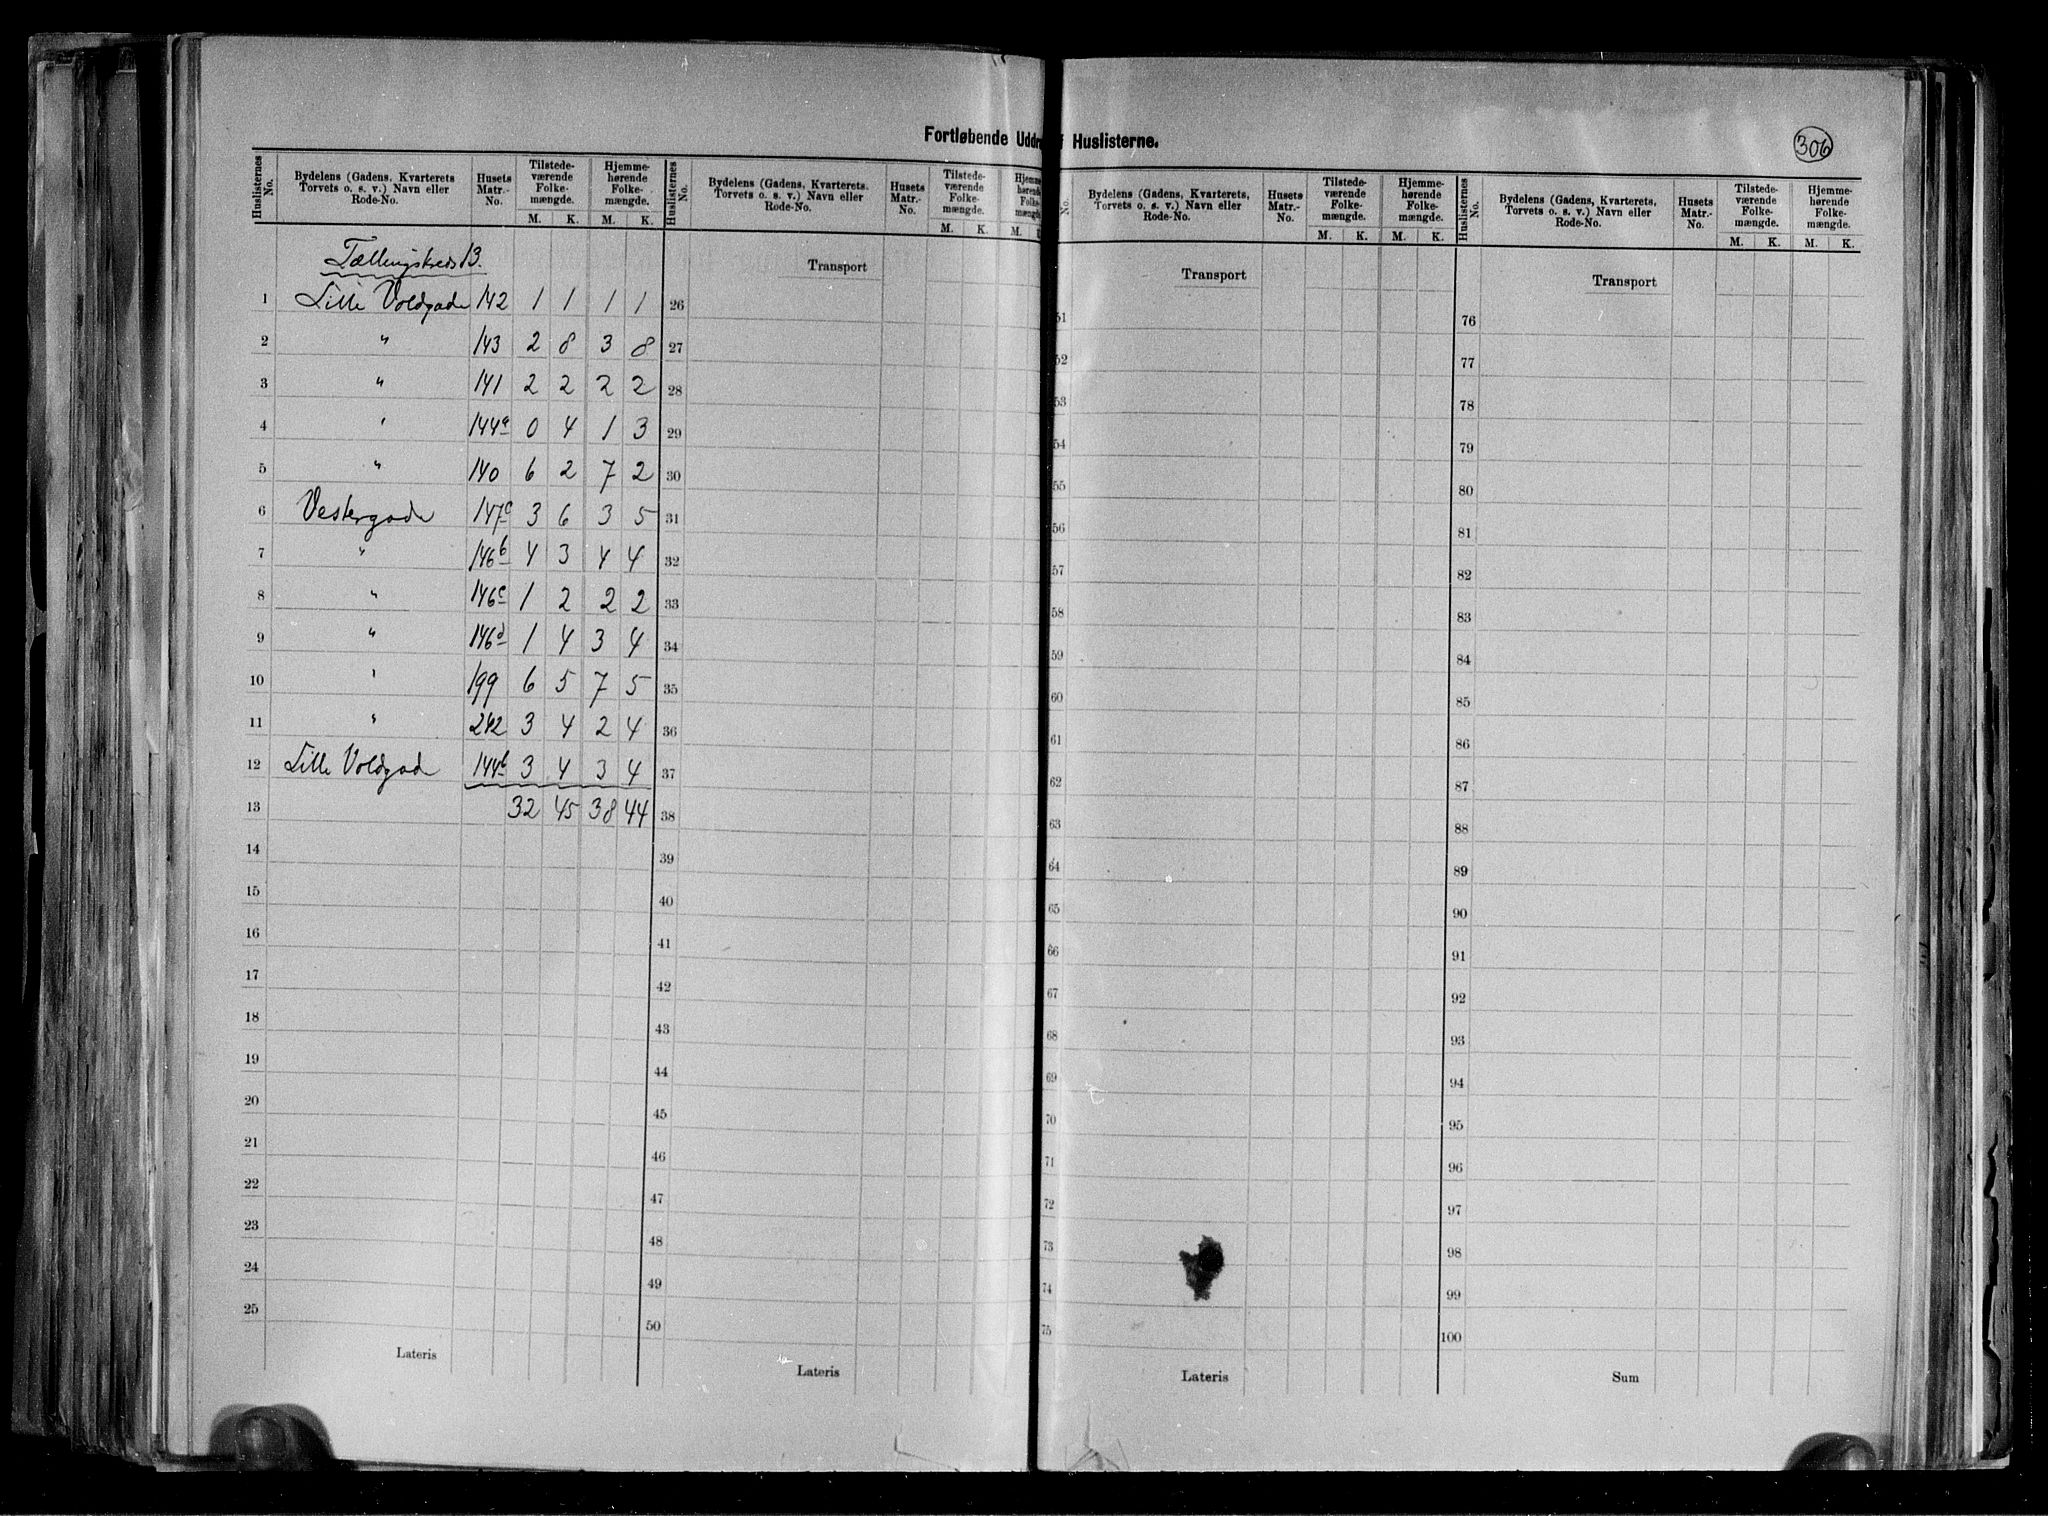 Fortløbende Uddr f Huslisterne.
306
Huslisternes No. Bydelens (Gadens, Kvarterets Torvets o. s. v.) Navn eller Rode-No. Husets Matr.-No. Tilstedeværende Folkemængde. M. K. Hjemmehørende Folkemængde. M. K.
Tællingskreds 13.
1 Lille Voldgade 142 1 1 1 1
2 " 143 2 8 3 8
3 " 141 2 2 2 2
4 " 144a 0 4 1 3
5 " 140 6 2 7 2
6 Vestergade 147c 3 6 3 5
7 " 146b 4 3 4 4
8 " 146c 1 2 2 2
9 " 146d 1 4 3 4
10 " 199 6 5 7 5
11 " 242 3 4 2 4
12 Lille Voldgade 144b 3 4 3 4
13 32 45 38 44
14
15
16
17
18
19
20
21
22
23
24
25
Lateris
Huslisternes No. Bydelens (Gadens, Kvarterets. Torvets o. s. v.) Navn eller Rode-No. Husets Matr.-No. Tilstedeværende Folkemængde. M. K. Hjemmehørende Folkemængde M.
Transport
26
27
28
29
30
31
32
33
34
35
36
37
38
39
40
41
42
43
44
45
46
47
48
49
50
Lateris
No. Bydelens (Gadens, Kvarterets, Torvets o. s. v.) Navn eller Rode-No. Husets Matr.-No. Tilstedeværende Folkemængde. M. K. Hjemmehørende Folkemængde. M. K.
Transport
51
52
53
54
55
56
57
58
59
60
61
62
63
64
65
66
67
68
69
70
71
72
73
74
75
Lateris
Huslisternes No. Bydelens (Gadens, Kvarterets, Torvets o. s. v.) Navn eller Rode-No. Husets Matr.-No. Tilstedeværende Folkemængde. M. K. Hjemmehørende Folkemængde. M. K.
Transport
76
77
78
79
80
81
82
83
84
85
86
87
88
89
90
91
92
93
94
95
96
97
98
99
100
Sum